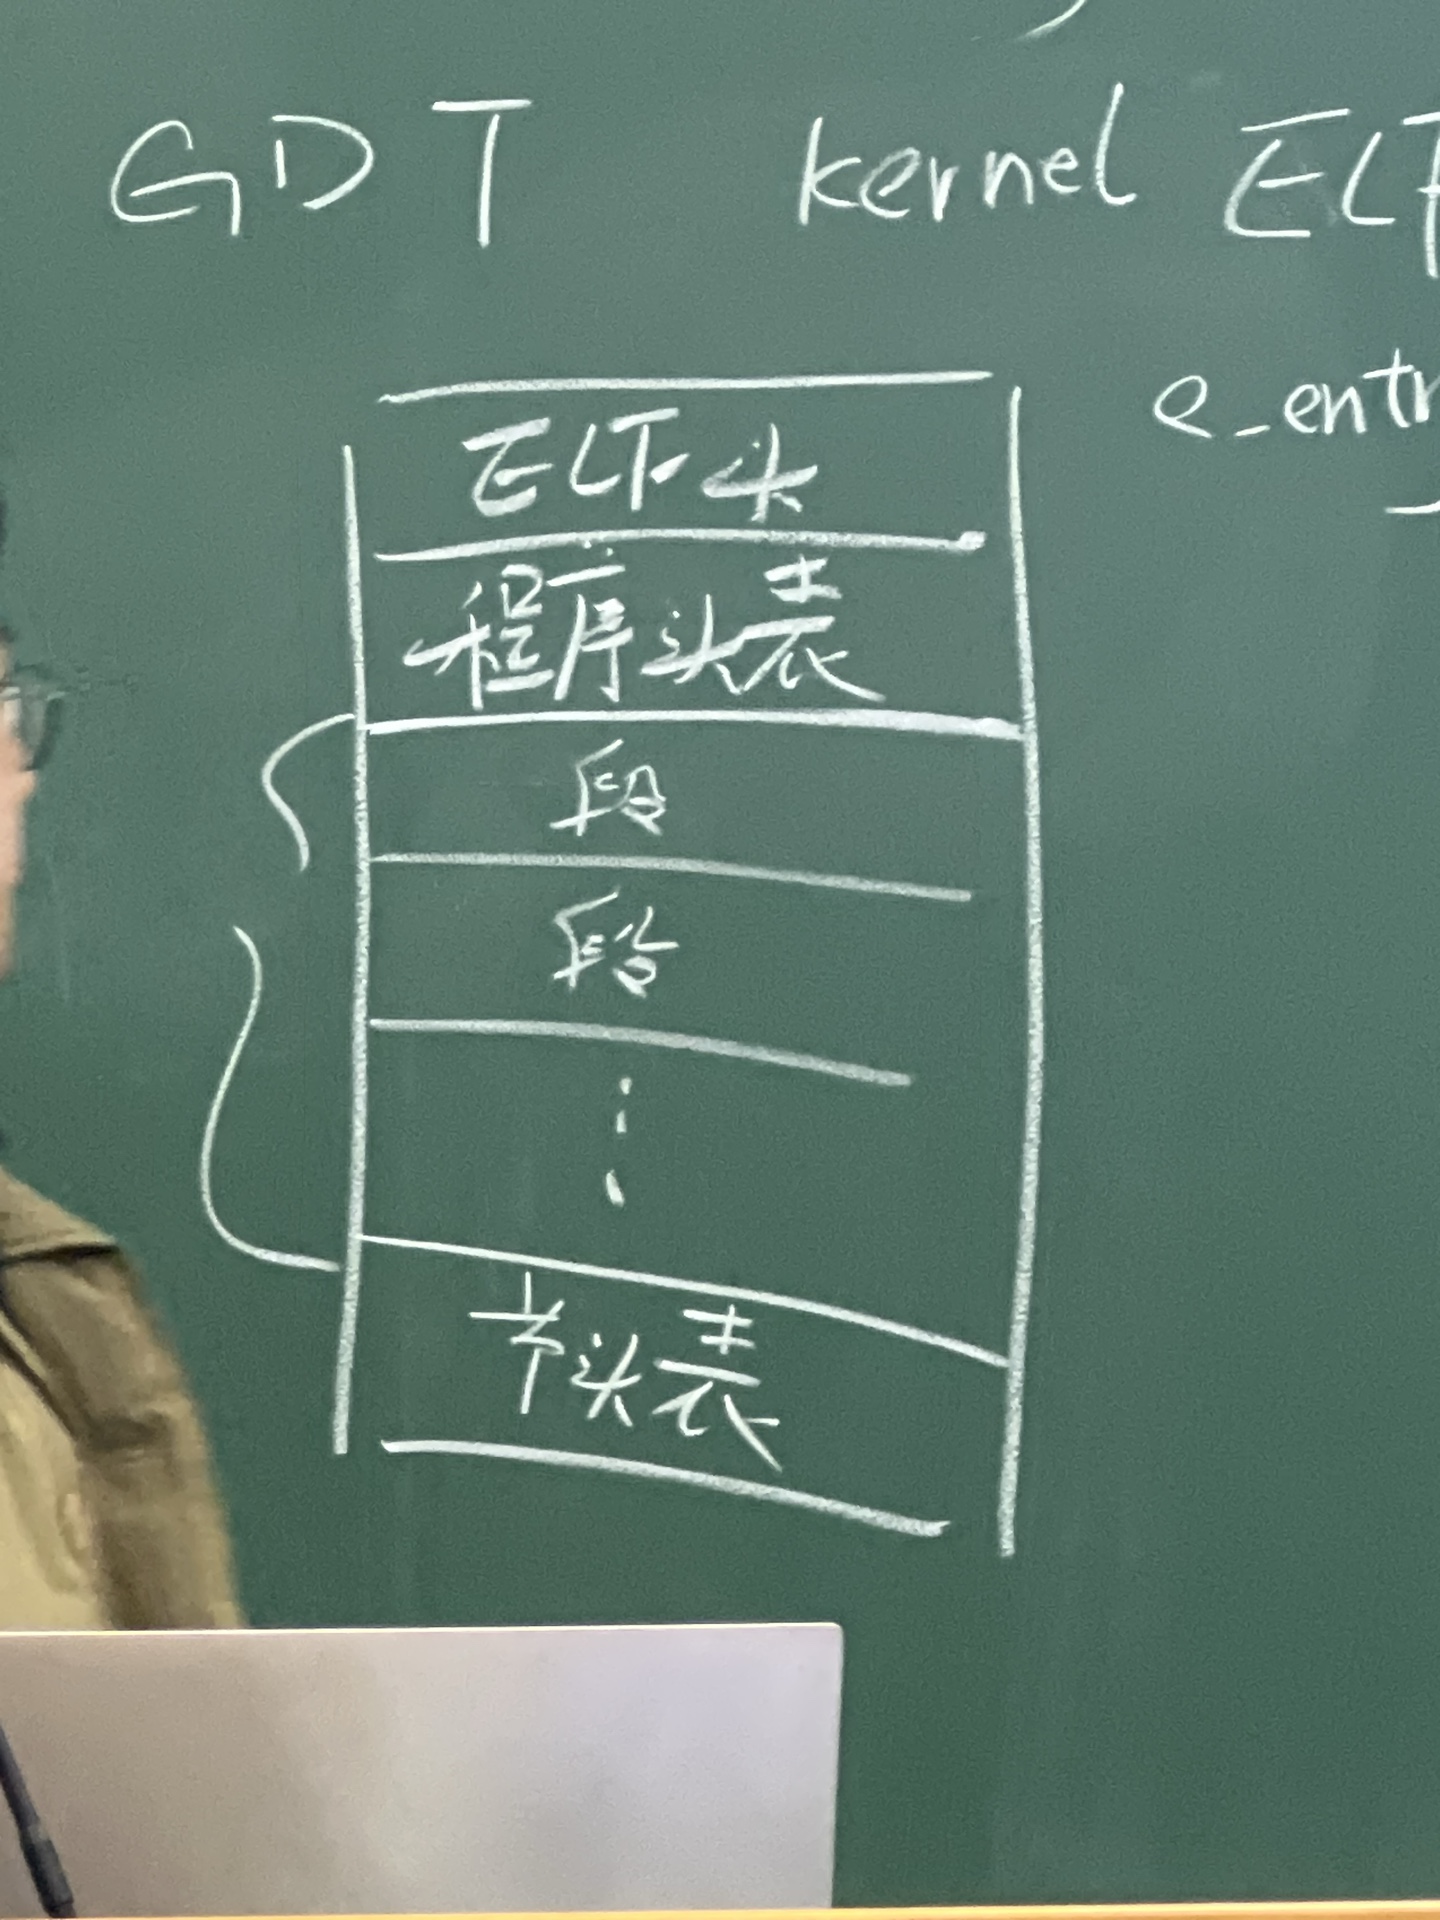 GDT kernel ELF
e_entr
ELF头
程序头表
段
段
⋮
节头表